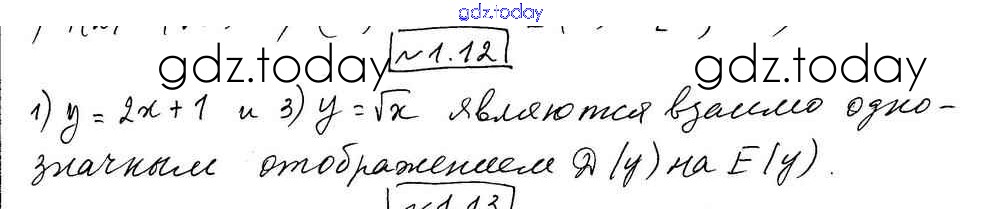 gdz.today
№1.12
gdz.today gdz.today
1) y = 2x + 1 и 3) y = √x являются взаимо одно-
значным отображением D(y) на E(y).
№1.13